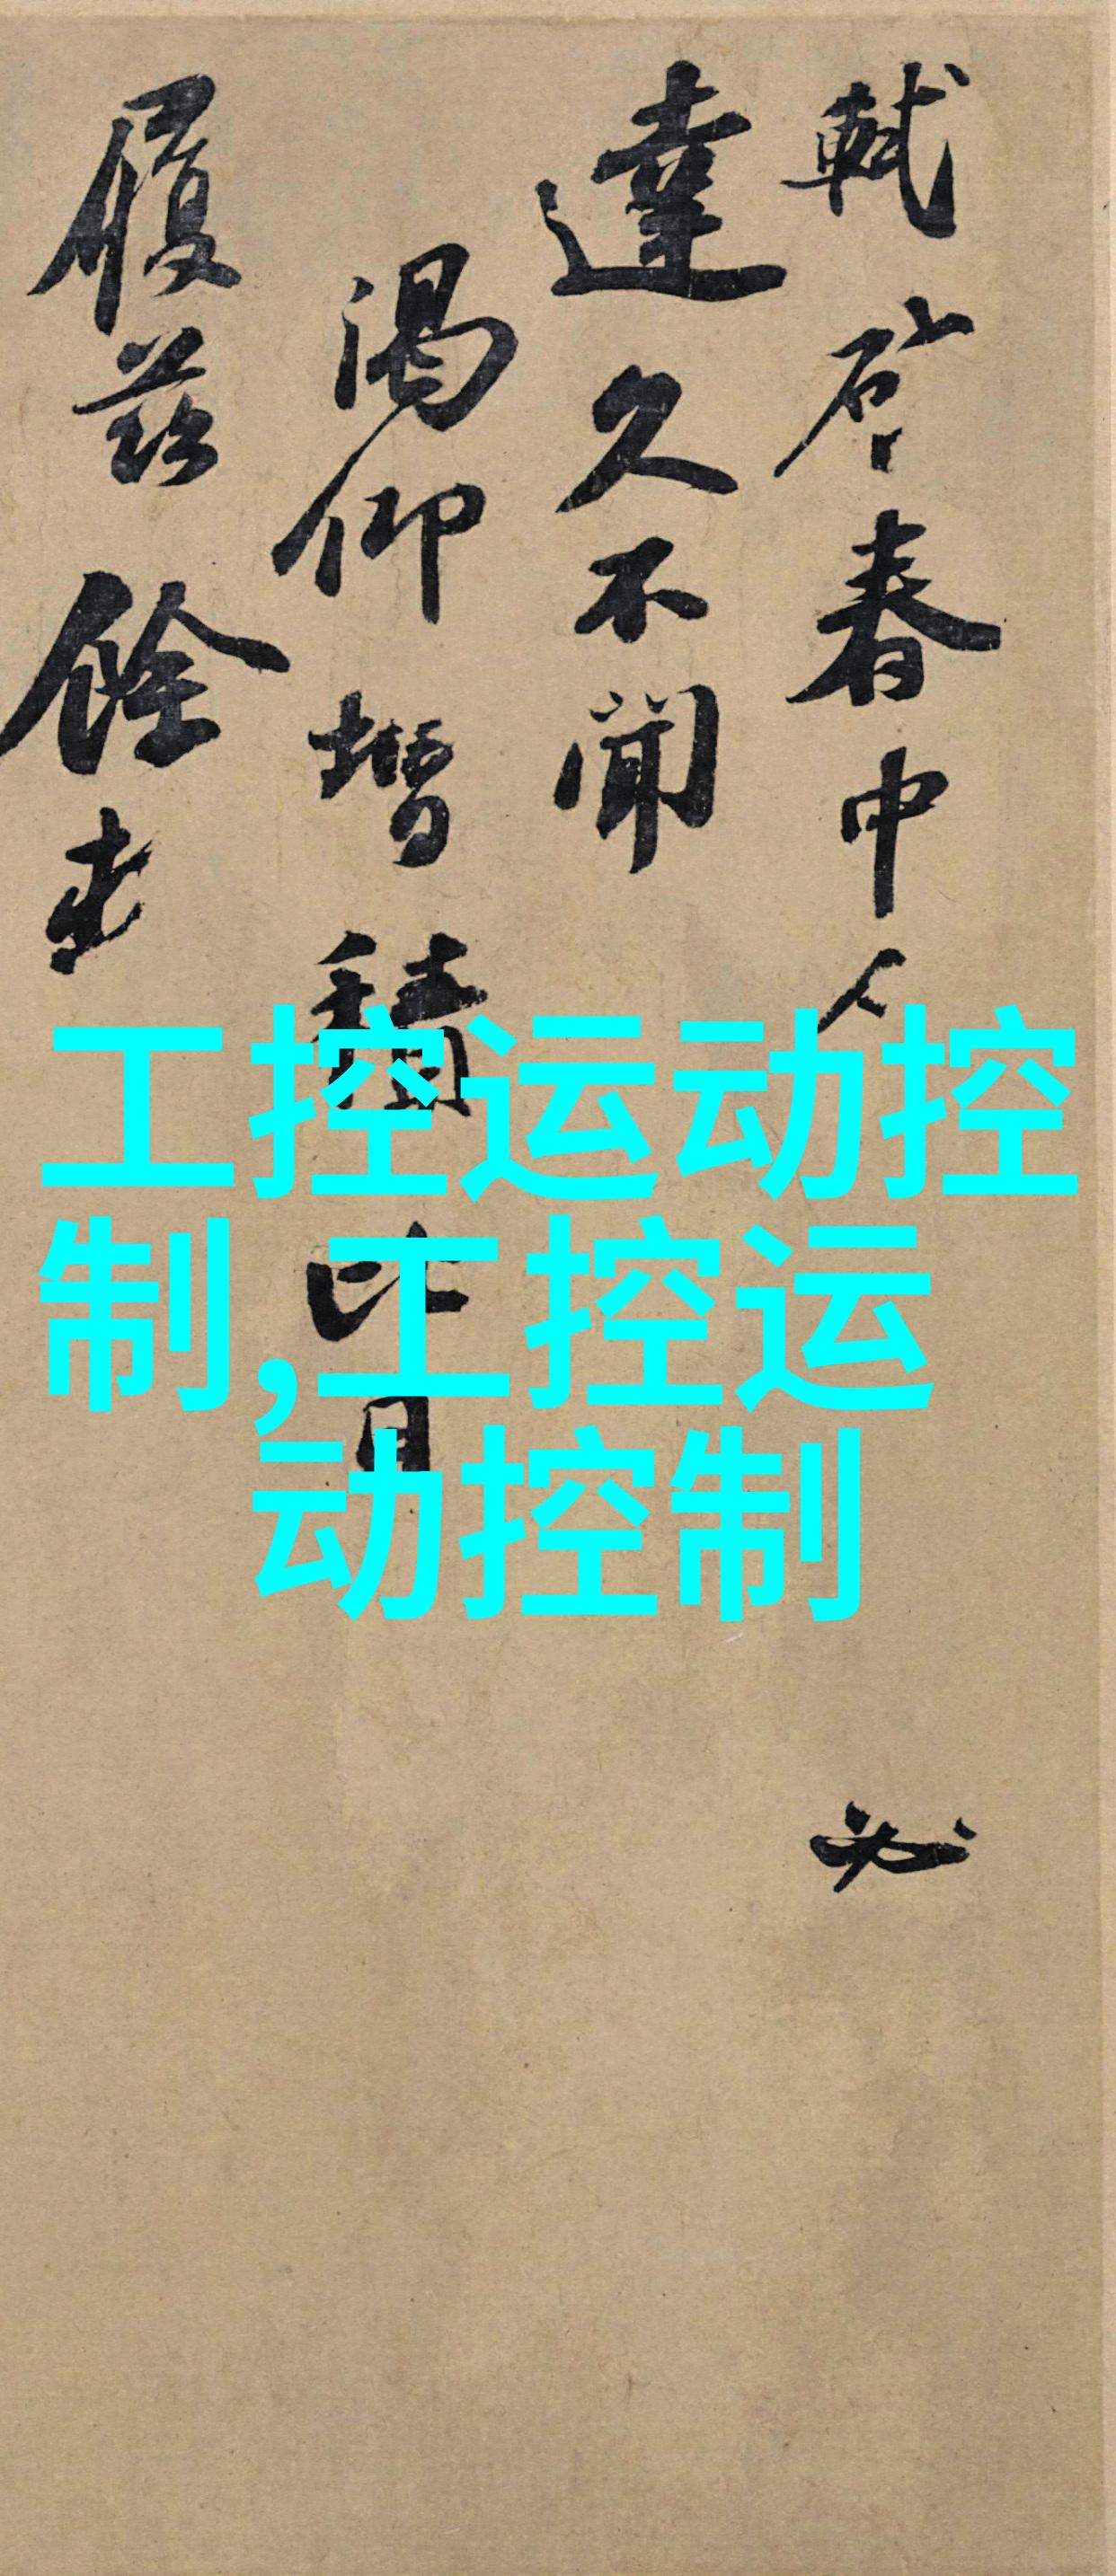 軾啓春中人必
達久不聞
渴仰增積比日
履茲餘
工控运动控
制,工控运
动控制